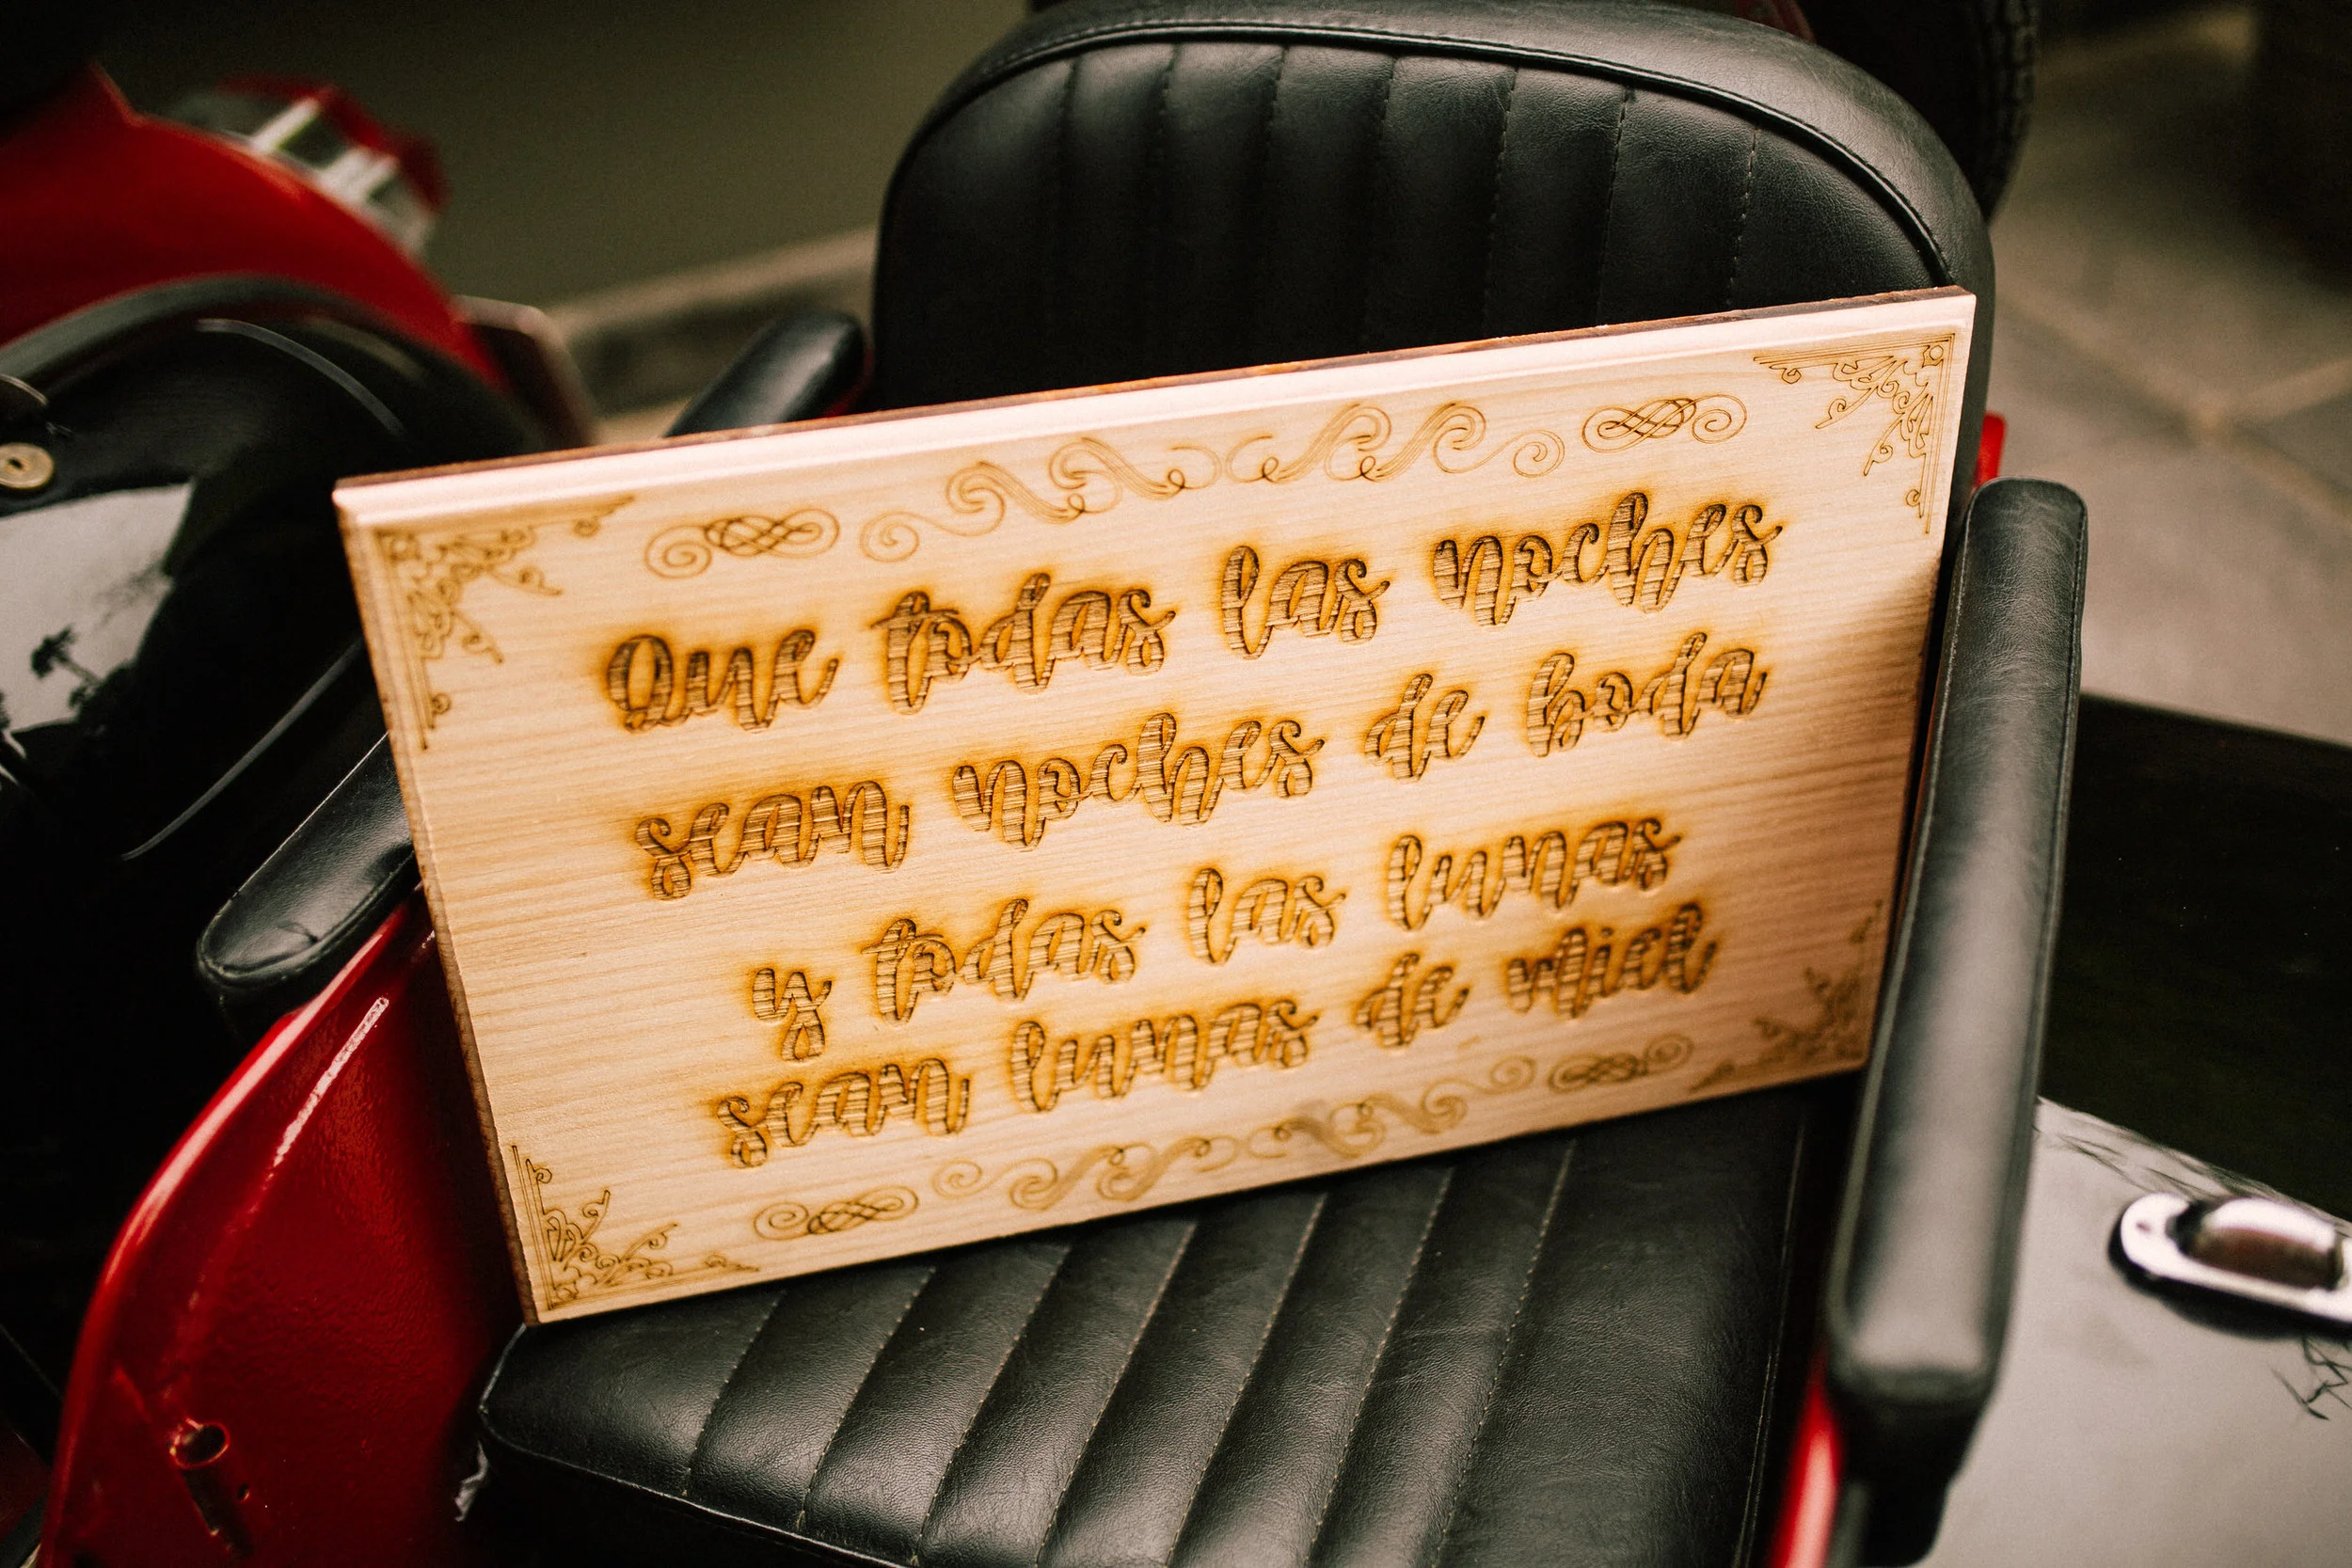 Que todas las noches
sean noches de boda
y todas las lunas
sean lunas de miel